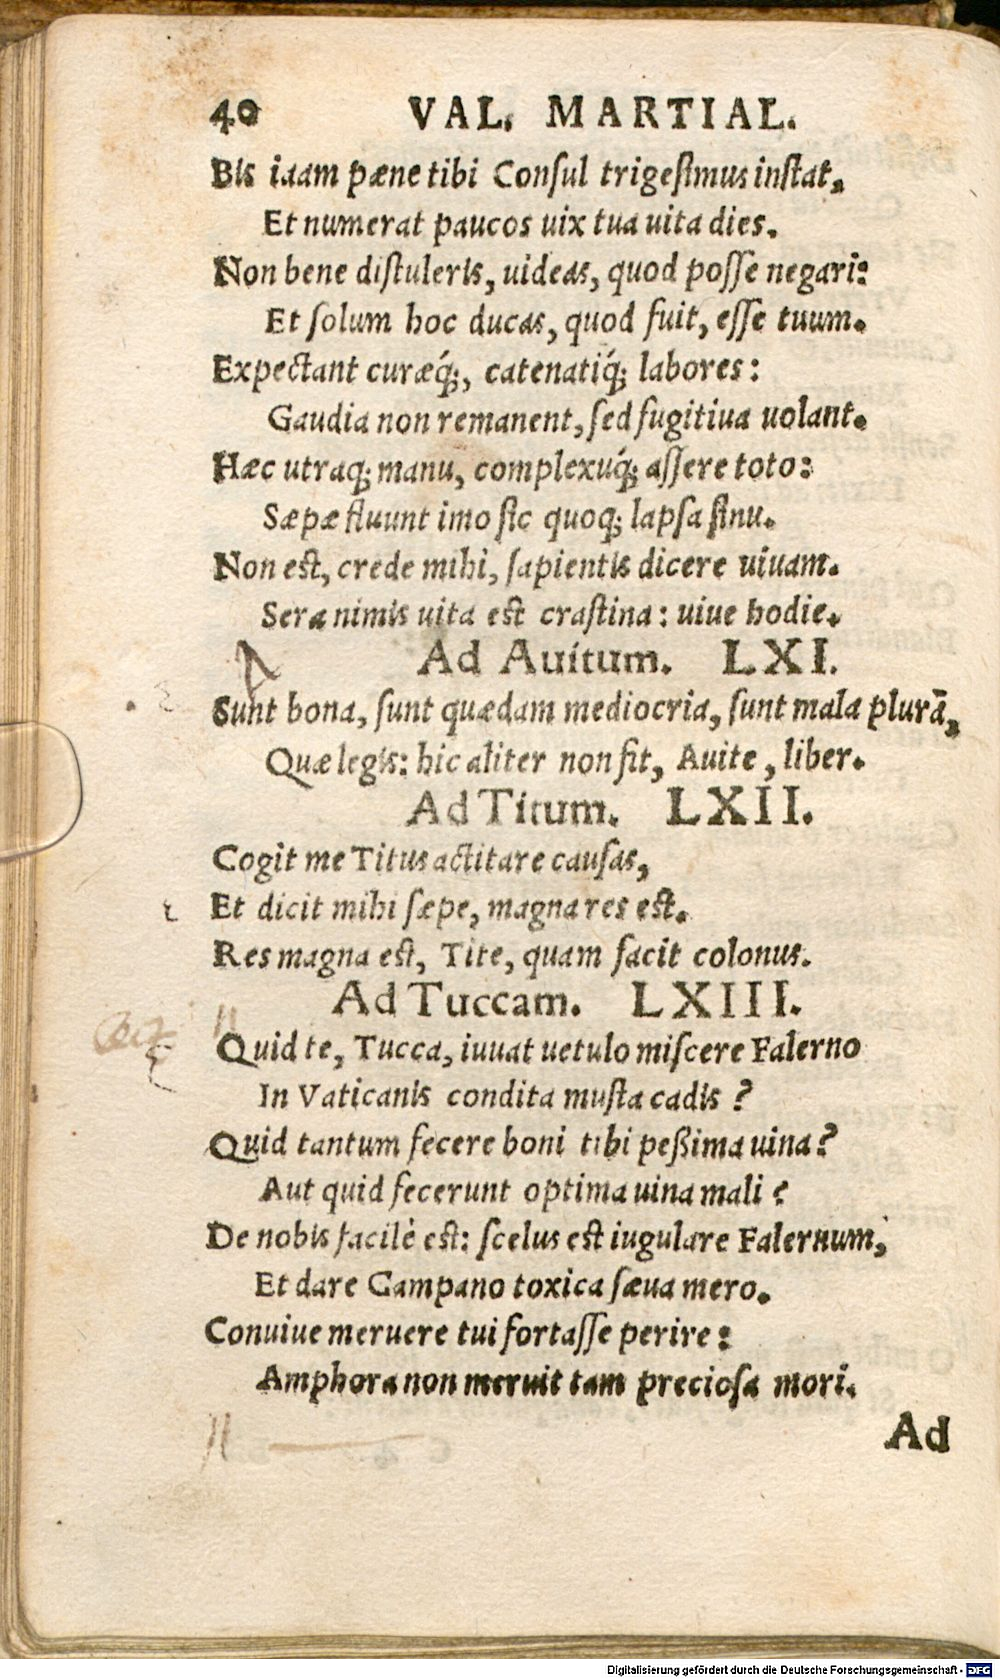 40 VAL. MARTIAL.
Bis iaam pæne tibi Conſul trigeſimus inſtat,
Et numerat paucos uix tua uita dies.
Non bene diſtuleris, uideas, quod poſſe negari:
Et ſolum hoc ducas, quod fuit, eſſe tuum.
Expectant curæq́;, catenatiq́; labores:
Gaudia non remanent, ſed fugitiua uolant.
Hæc utraq; manu, complexuq́; aſſere toto:
Sæpæ fluunt imo ſic quoq; lapſa ſinu.
Non est, crede mihi, ſapientis dicere uiuam.
Sera nimis uita est craſtina: uiue hodie.
Ad Auitum. LXI.
Sunt bona, ſunt quædam mediocria, ſunt mala plurā,
Quæ legis: hic aliter non fit, Auite, liber.
Ad Titum. LXII.
Cogit me Titus actitare cauſas,
Et dicit mihi ſæpe, magna res est.
Res magna est, Tite, quam facit colonus.
Ad Tuccam. LXIII.
Quid te, Tucca, iuuat uetulo miſcere Falerno
In Vaticanis condita muſta cadis?
Quid tantum fecere boni tibi peßima uina?
Aut quid fecerunt optima uina mali?
De nobis facilè est: ſcelus est iugulare Falernum,
Et dare Campano toxica ſæua mero.
Conuiuæ meruere tui fortaſſe perire:
Amphora non meruit tam precioſa mori.
Ad
Digitalisierung gefördert durch die Deutsche Forschungsgemeinschaft - DFG